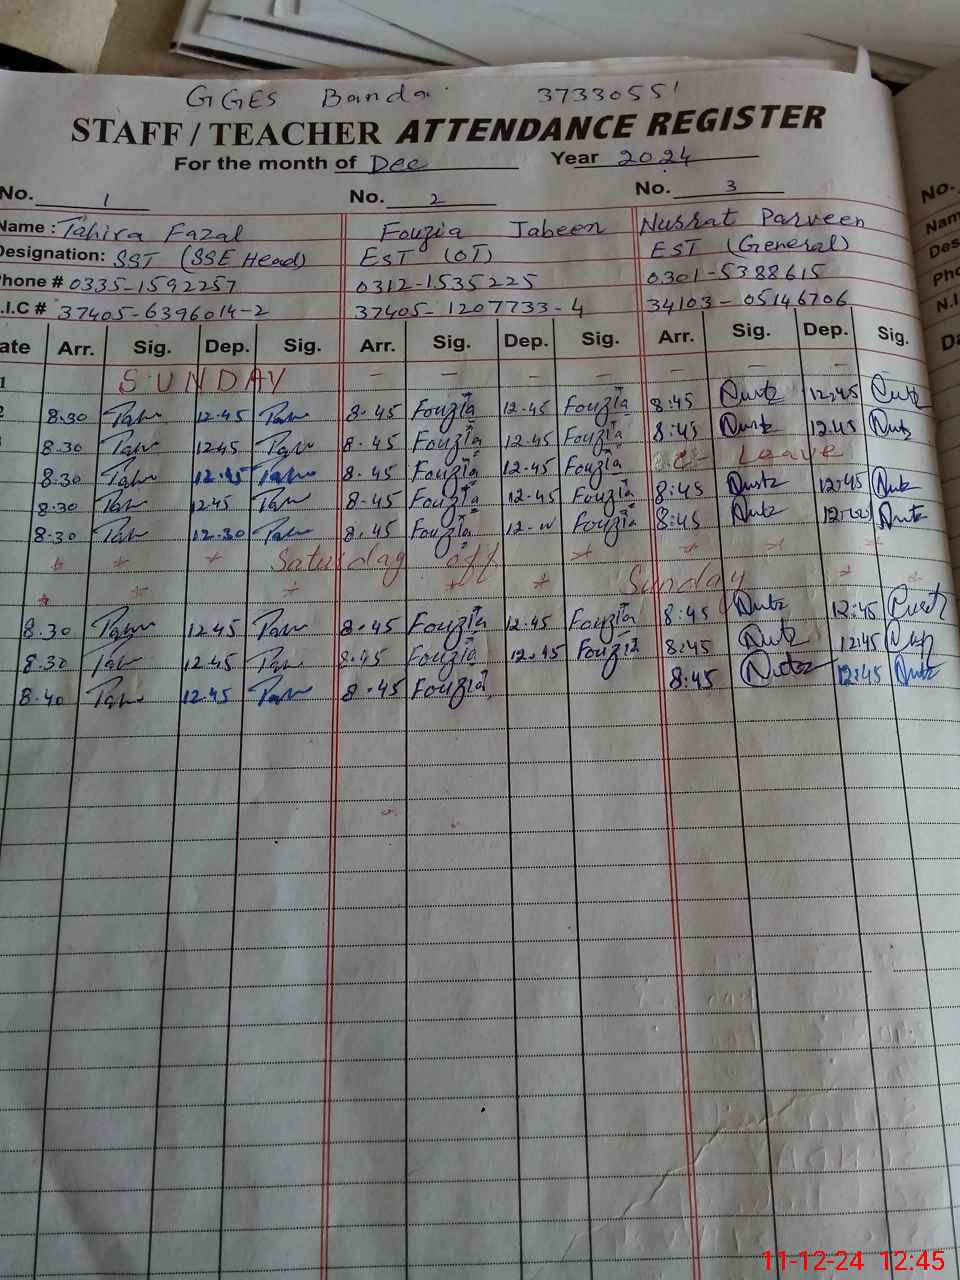 GGES Banda 37330551
STAFF / TEACHER ATTENDANCE REGISTER
For the month of Dec Year 2024
No. 1 No. 2 No. 3
Name : Tahira Fazal Fouzia Jabeen Nusrat Parveen
Designation: SST (SSE Head) EST (OT) EST (General)
Phone # 0335-1592257 0312-1535225 0301-5388615
.I.C # 37405-6396014-2 37405-1207733-4 34103-05146706
ate Arr. Sig. Dep. Sig. Arr. Sig. Dep. Sig. Arr. Sig. Dep. Sig.
1 SUNDAY - - - - - - - -
2 8.30 12.45 8.45 Fouzia 12.45 Fouzia 8:45 12:45
8.30 12.45 8.45 Fouzia 12.45 Fouzia 8:45 12:45
8.30 12.45 8.45 Fouzia 12.45 Fouzia Leave
8.30 12.45 8.45 Fouzia 12.45 Fouzia 8:45 12:45
8.30 12.30 8.45 Fouzia Fouzia 8:45
Saturday off
Sunday
8.30 12.45 8.45 Fouzia 12.45 Fouzia 8:45 12:45
8.30 12.45 8.45 Fouzia 12.45 Fouzia 8:45 12:45
8.40 12.45 8.45 Fouzia 8:45 12:45
No.
Nam
Des
Pho
N.I
Da
11-12-24 12:45